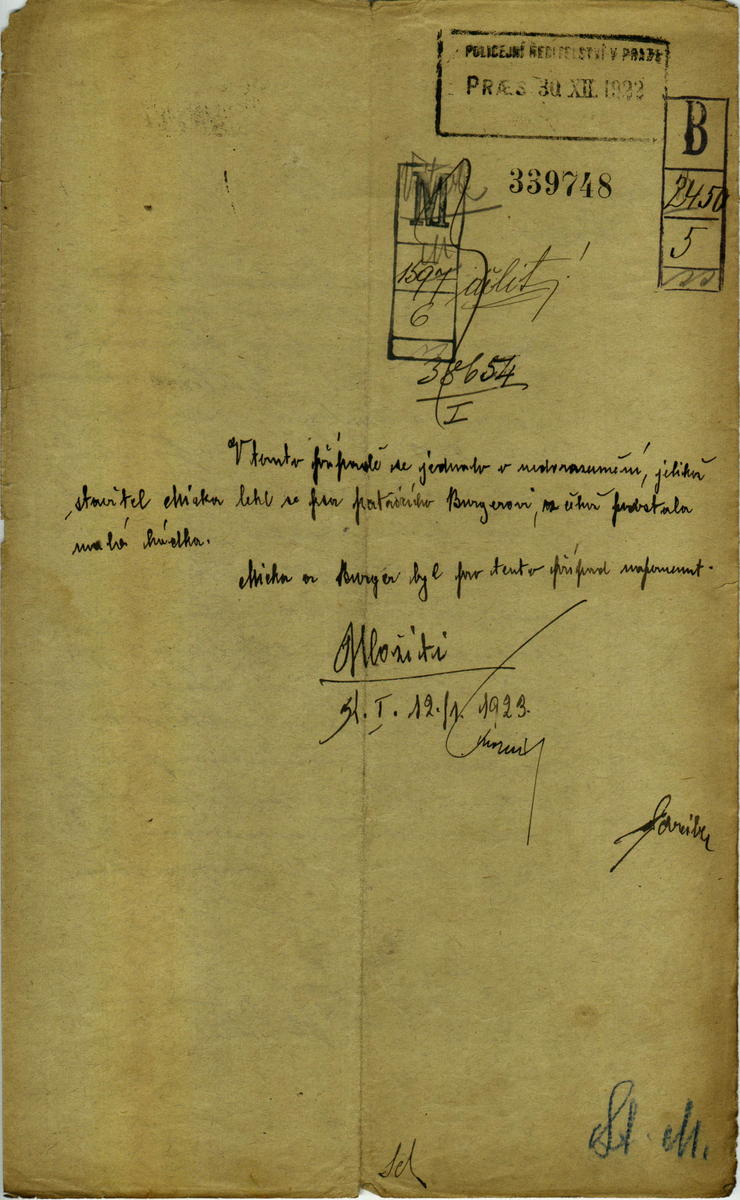 POLICEJNÍ ŘEDITELSTVÍ V PRAZE
PRÆS 30 XII. 1922
B
2450
5
339748
M
1597
6
dělit!
38654
I
V tomto případě se jednalo o nedorozumění, jelikož
stavitel Micka lekl se psa patřícího Burgerovi, z čehož povstala
malá hádka.
Micka a Burger byl pro tento případ napomenut.
Uložiti
St. I. 12./1. 1923.
St. M.